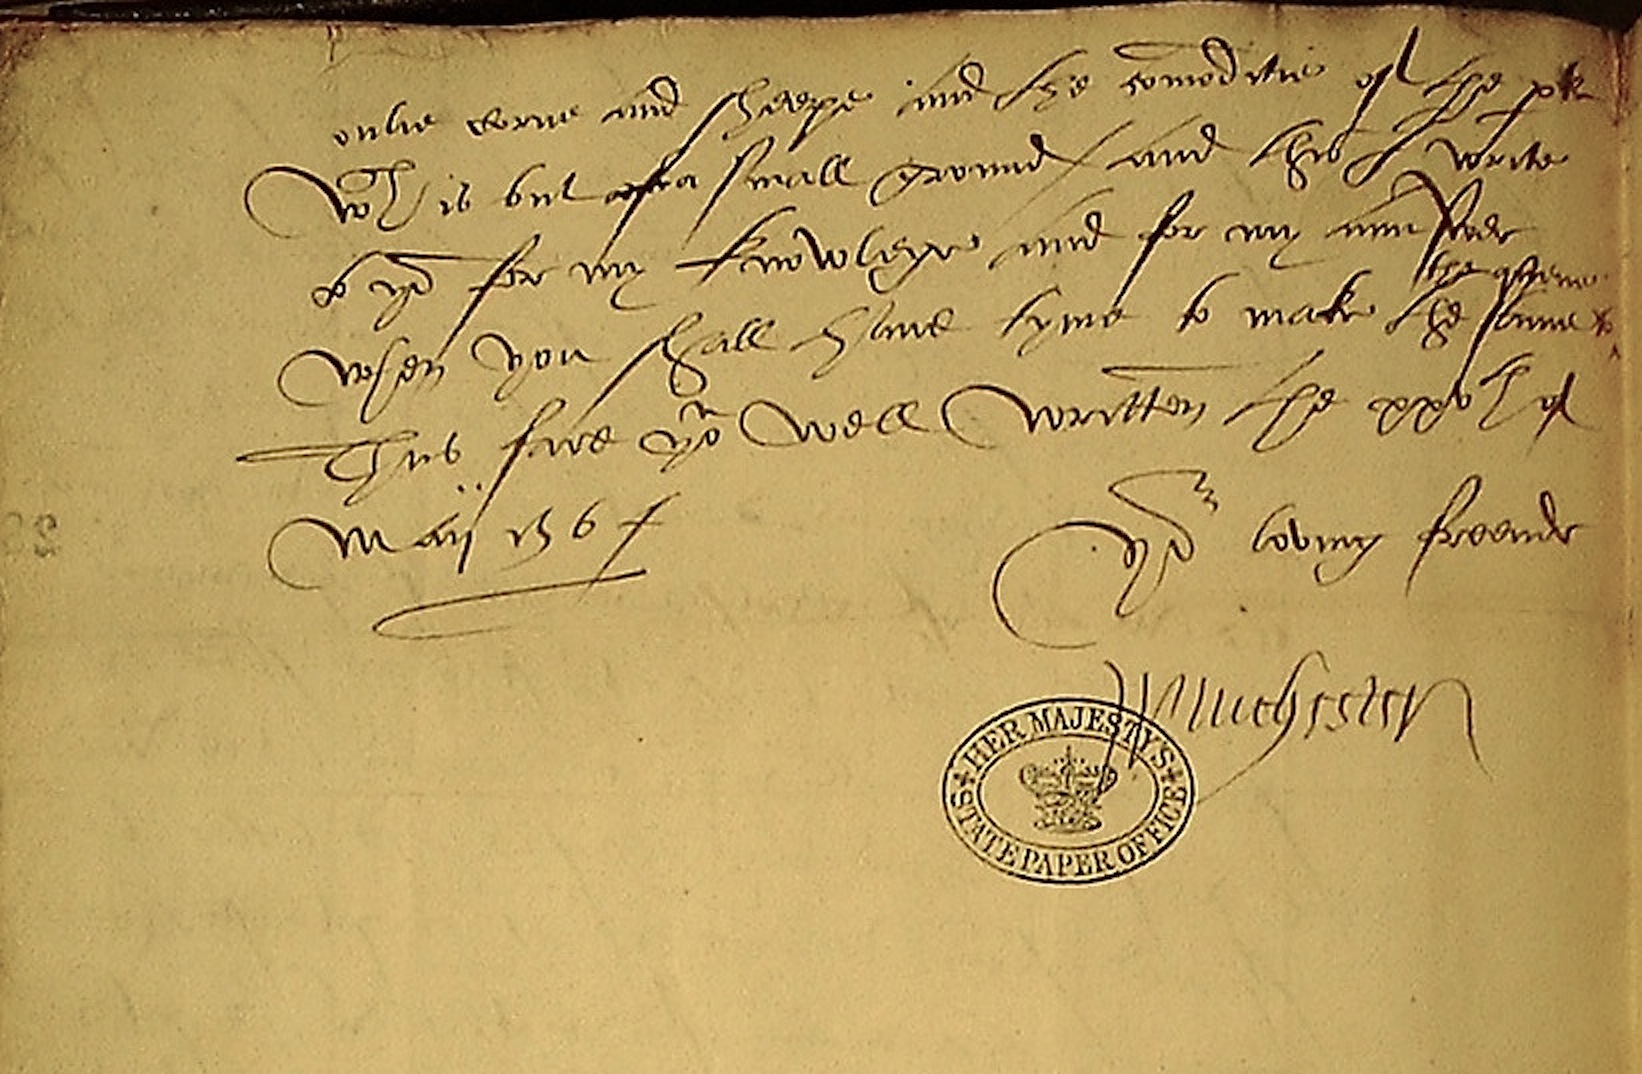 onlie corne and sheepe and the comoditie of the pk
wch is but a small ground / and this I write
to yo for my knowlege and for my
when you shall have tyme to make the same to
the quene
Thus fare yo well Written the xxvth of
Maij 156
yor loving freende
Winchester
HER MAJESTY'S STATE PAPER OFFICE